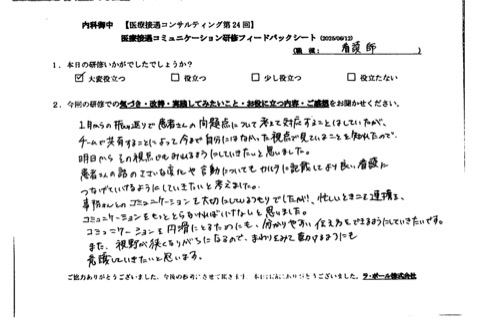 内科御中 【医療接遇コンサルティング第24回】
医療接遇コミュニケーション研修フィードバックシート (2025/06/12)
(職種: 看護師 )
1．本日の研修いかがでしたでしょうか？
☑ 大変役立つ □ 役立つ □ 少し役立つ □ 役立たない
2．今回の研修での気づき・改善・実践してみたいこと・お役に立つ内容・ご感想をお聞かせください。
1月からの振り返りで患者さんの問題点について考えて対応することはしていたが、
チームで共有することによって今まで自分にはなかった視点で見ていることを知れたので、
明日からその視点でもみれるようにしていきたいと思いました。
患者さんの話のささいな変化や言動についてもカルテに記載してより良い看護に
つなげていけるようにしていきたいと考えました。
事務さんとのコミュニケーションも大切にしているつもりでしたが、忙しいときこそ連携を、
コミュニケーションをもっととらなければいけないと思いました。
コミュニケーションを円滑にとるためにも、分かりやすい伝え方をできるようにしていきたいです。
また、視野が狭くなりがちになるので、まわりをみて動けるようにも
意識していきたいと思います。
ご協力ありがとうございました。今後の参考にさせて頂きます。本日は誠にありがとうございました。 ラ・ポール株式会社